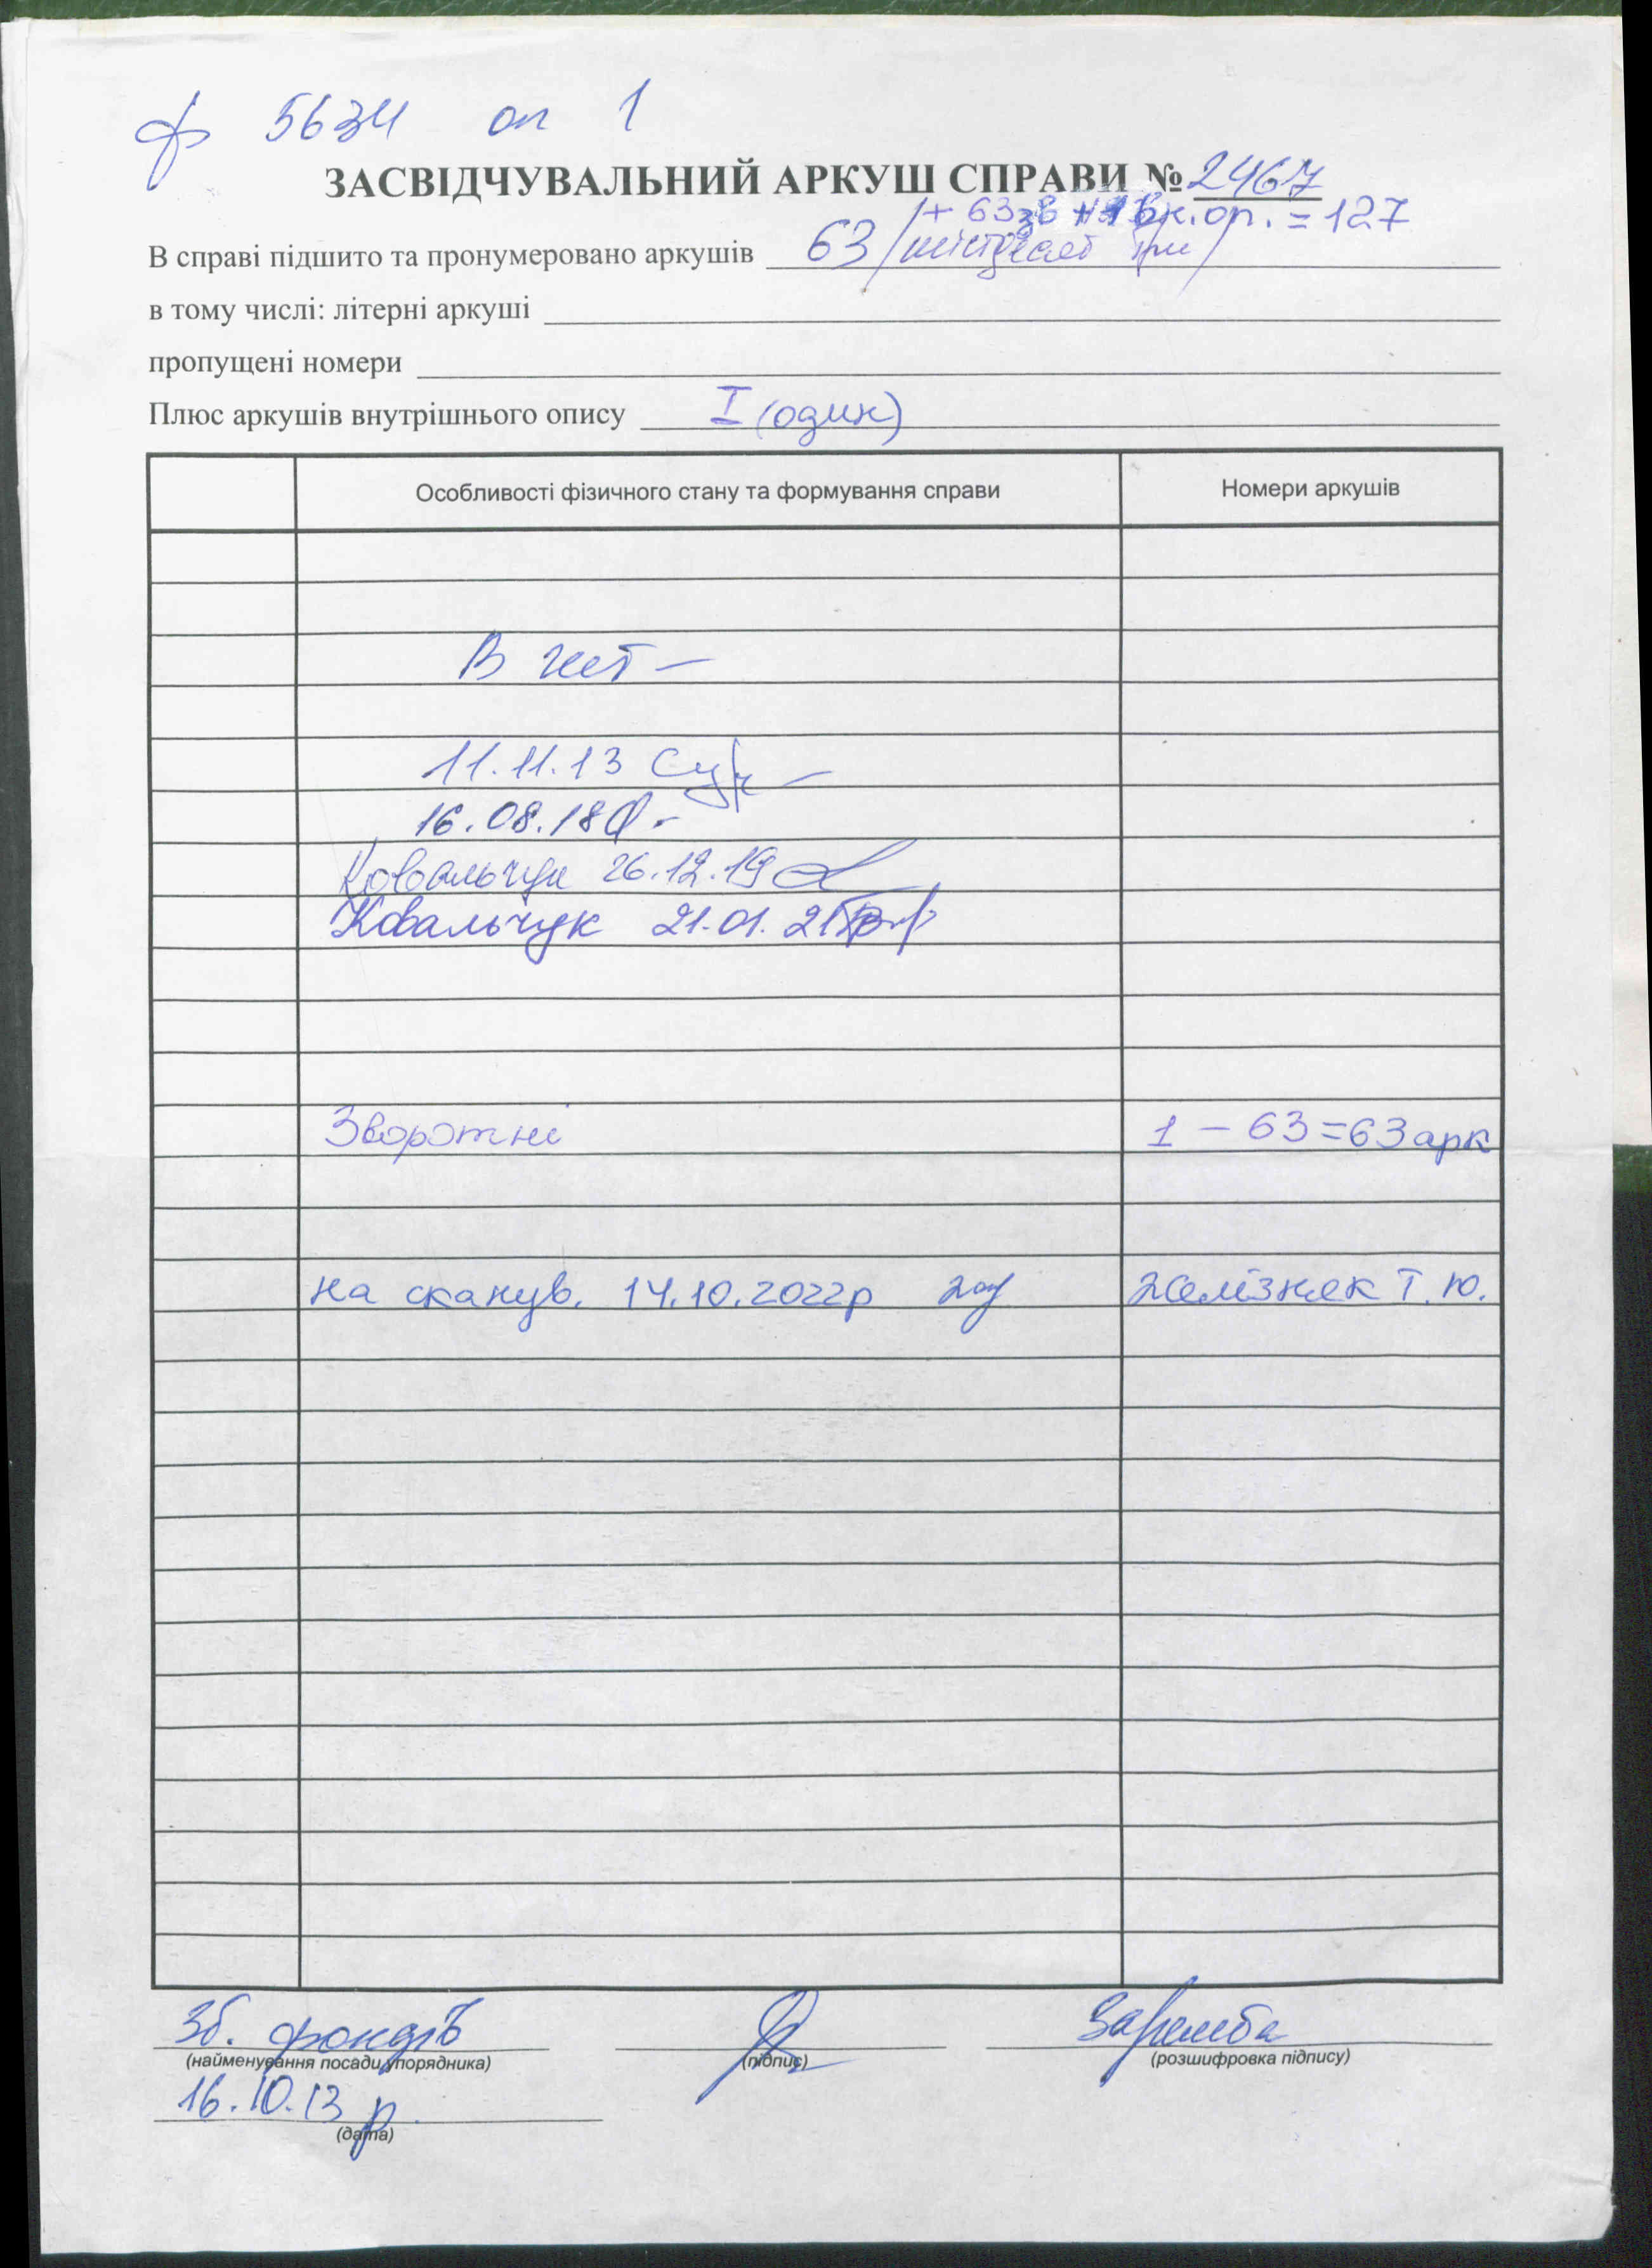 ф 5634 оп 1
ЗАСВІДЧУВАЛЬНИЙ АРКУШ СПРАВИ № 2467
+ 63 зв + 1 вн. оп. = 127
В справі підшито та пронумеровано аркушів 63 /шістдесят три/
в тому числі: літерні аркуші
пропущені номери
Плюс аркушів внутрішнього опису I (один)
Особливості фізичного стану та формування справи Номери аркушів
В
11.11.13
16.08.18
Ковальчук 26.12.19
Ковальчук 21.01.21
Зворотні 1 – 63 = 63 арк
на сканув. 14.10.2022р Желізняк Т. Ю.
Зб. фондів Заремба
(найменування посади упорядника) (підпис) (розшифровка підпису)
16.10.13 р.
(дата)